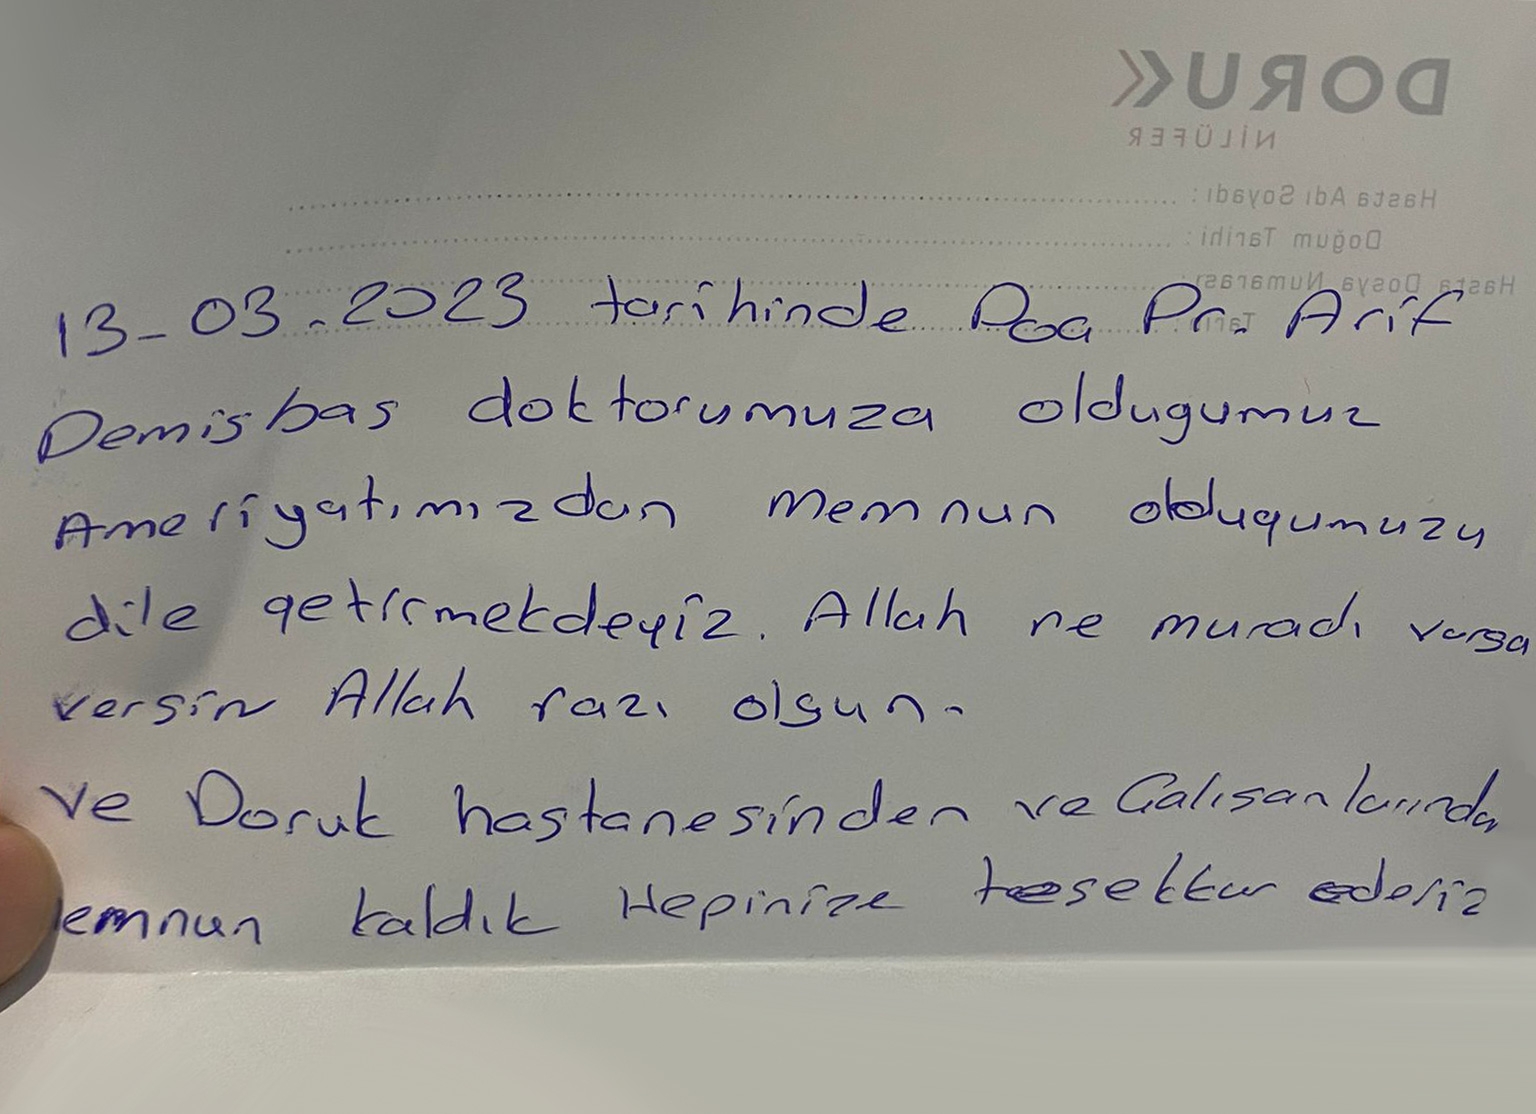 DORUK
NİLÜFER
Hasta Adı Soyadı :
Doğum Tarihi :
Hasta Dosya Numarası :
Tarih :
13-03-2023 tarihinde Doç Dr. Arif
Demisbas doktorumuza oldugumuz
Ameriyatımızdan memnun oldugumuzu
dile getirmekdeyiz. Allah ne muradı varsa
versin Allah razı olsun.
ve Doruk hastanesinden ve Calısanlarında
emnun kaldık Hepinize tesekkur ederiz